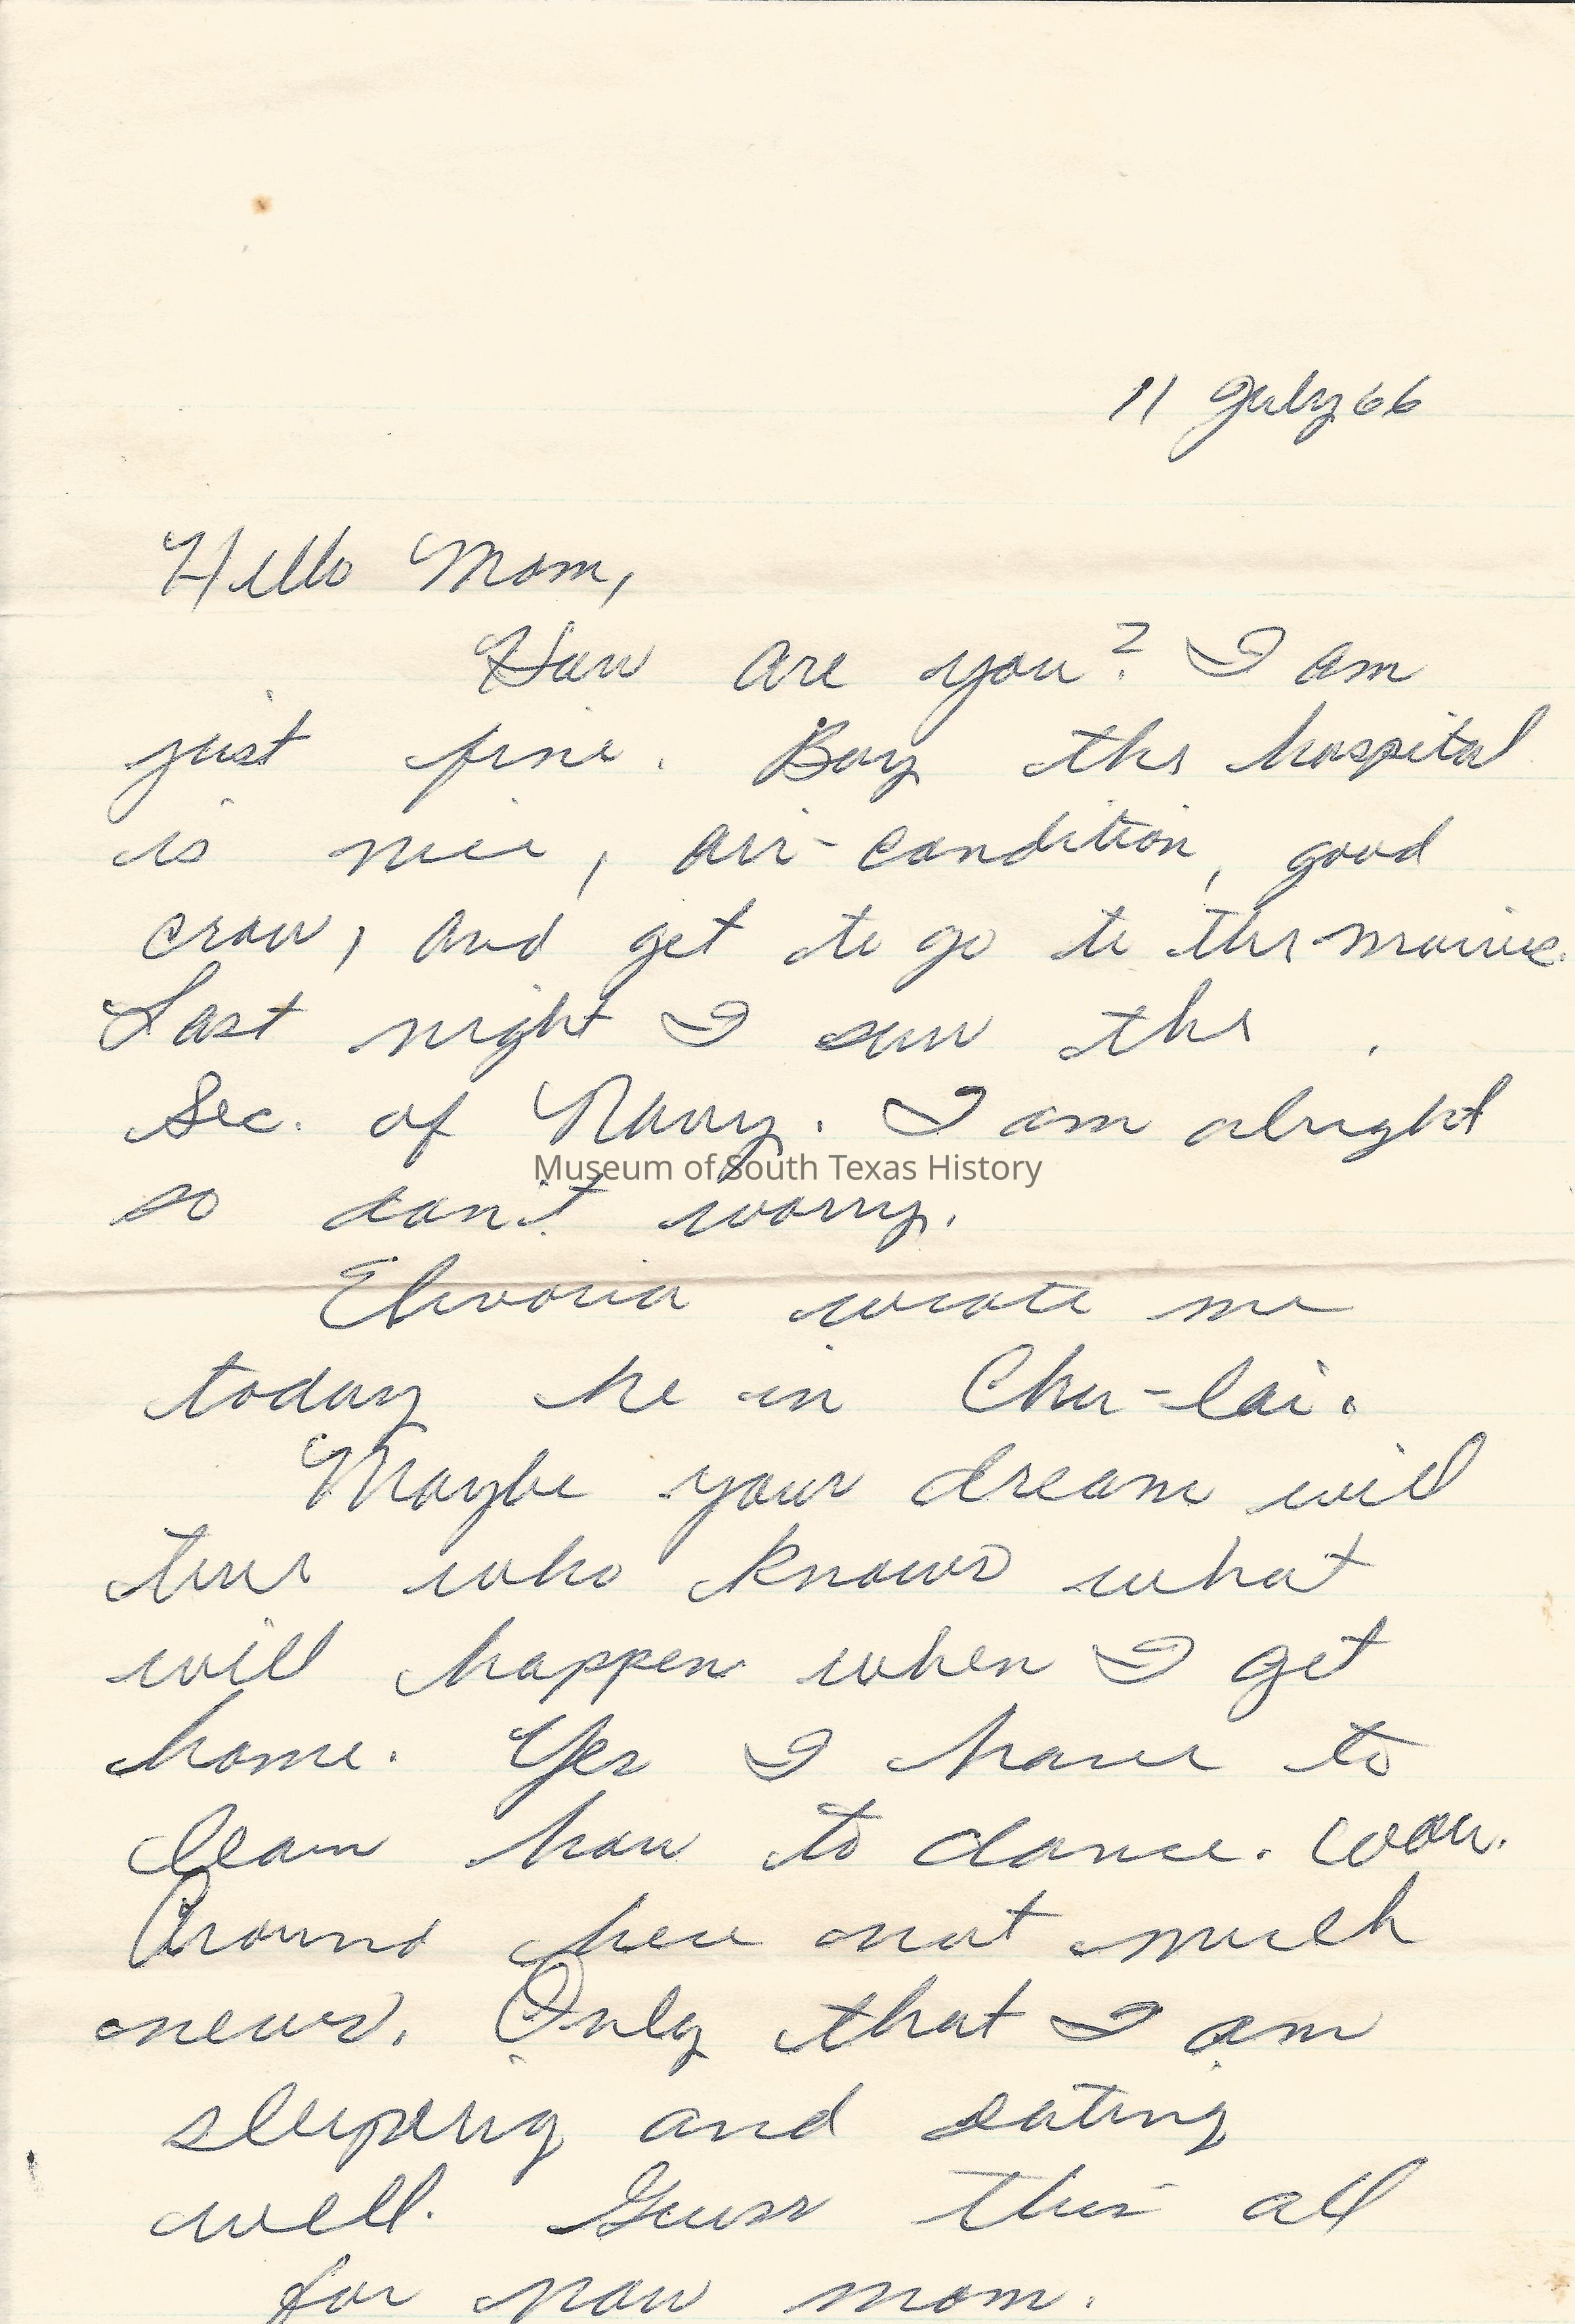 11 July 66
Hello Mom,
How are you? I am
just fine. Boy the hospital
is nice, air-condition, good
crow, and get to go to the movies.
Last night I saw the
Sec. of Navy. I am alright
Museum of South Texas History
so don't worry.
wrote me
today he in Chu-lai.
Maybe your dream will
true who knows what
will happen when I get
home. Yes I have to
learn how to dance. Wow.
Around here not much
news. Only that I am
sleeping and eating
well. Guess this all
for now mom.